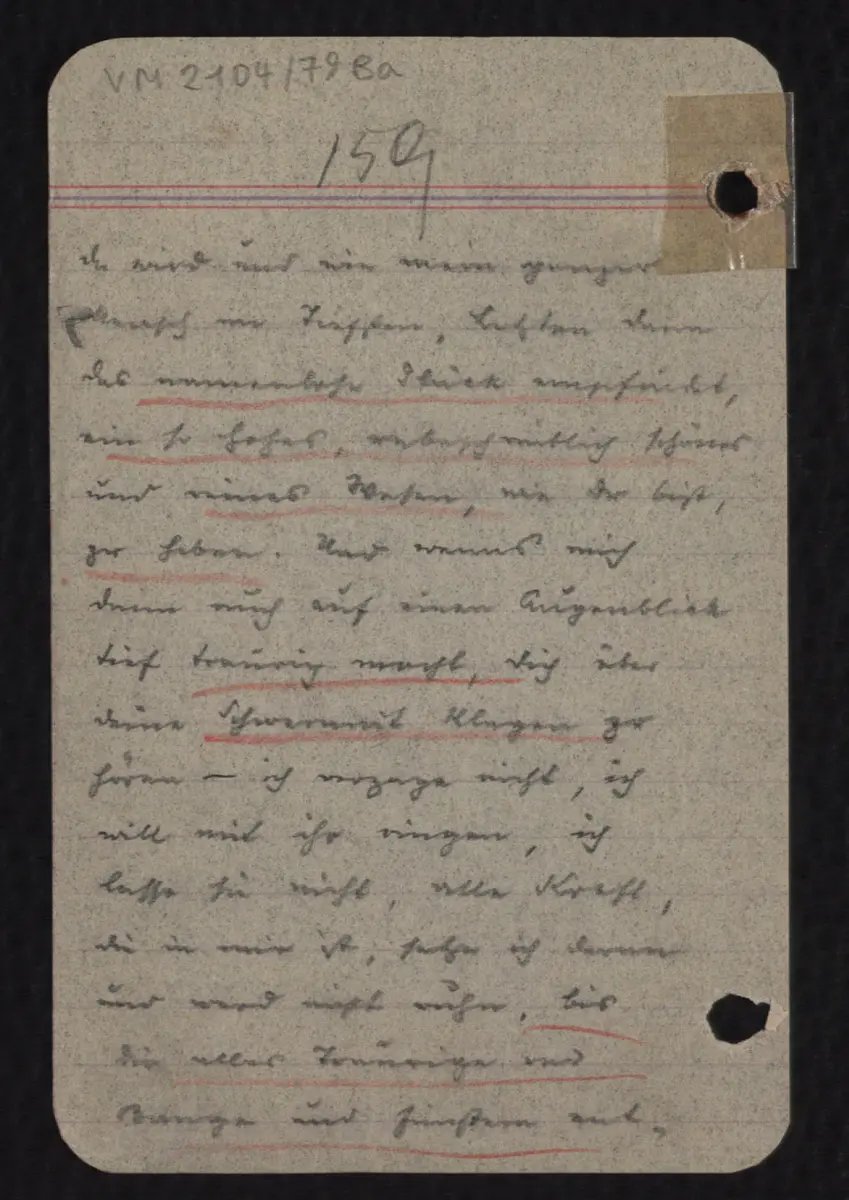 VM 2104/79 Ba
159
du wird und wie mein ganzer
Mensch im Tiefsten, Letzten dann
das namenlose Glück empfindet,
ein so hohes, unbeschreiblich schönes
und reines Wesen, wie du bist,
zu haben. Und wenns mich
dann auch auf einen Augenblick
tief traurig macht, dich über
deine Schwermut klagen zu
hören – ich verzage nicht, ich
will mit ihr ringen, ich
lasse sie nicht, alle Kraft,
die in mir ist, setze ich daran
und werd nicht ruhn, bis
die alles Traurige und
Bange und Finstern ent-